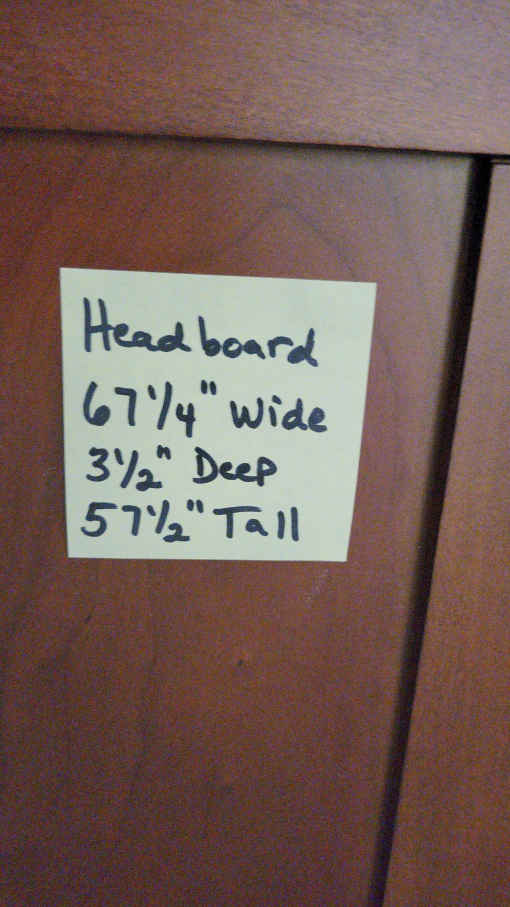 Headboard
67 1/4" Wide
3 1/2" Deep
57 1/2" Tall